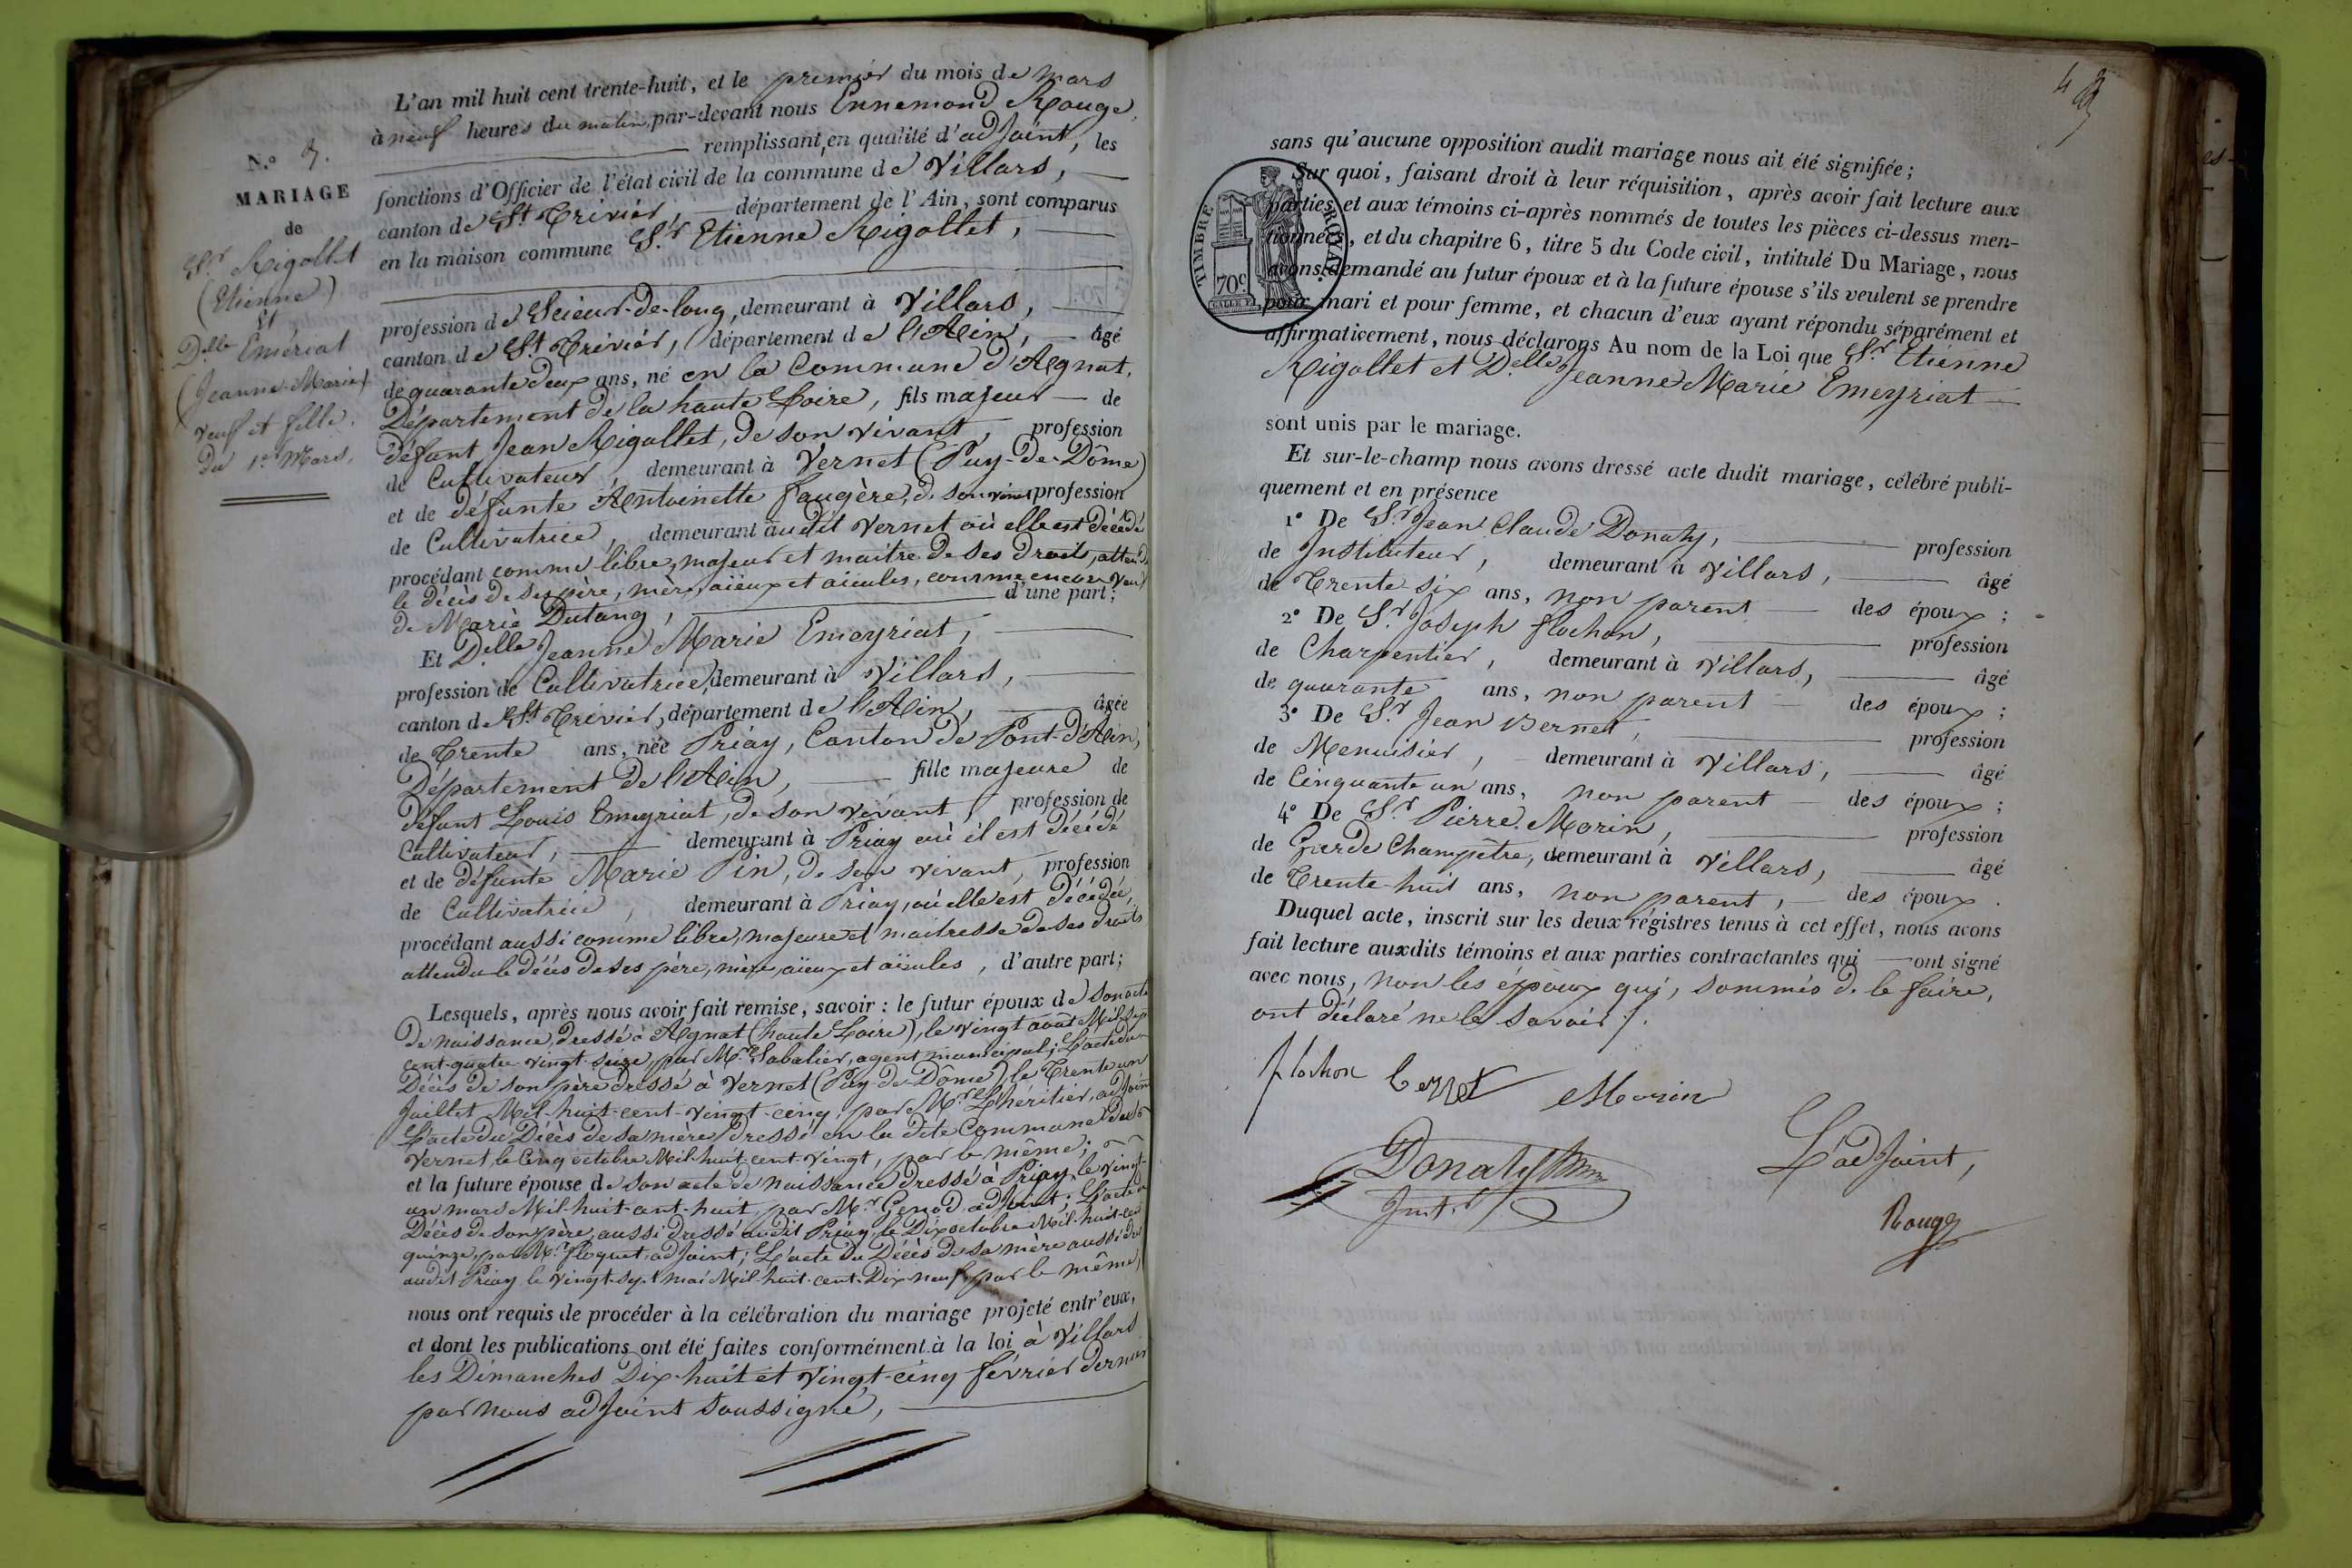 N.º
MARIAGE
de
S.r Rigollet
(Etienne)
Et
D.lle Emériat
(Jeanne-Marie)
veuf et fille.
du 1er Mars.
L'an mil huit cent trente-huit, et le premier du mois de mars
à neuf heures du matin par-devant nous Ennemond Rouge,
remplissant, en qualité d'adjoint, les
fonctions d'Officier de l'état civil de la commune de Villars,
canton de St. Trivier, département de l'Ain, sont comparus
en la maison commune S.r Etienne Rigollet,
profession de Scieur-de-long, demeurant à Villars,
canton de St. Trivier, département de l'Ain, âgé
de quarante deux ans, né en la Commune d'Agnat,
Département de la haute Loire, fils majeur de
défunt Jean Rigollet, de son vivant, profession
de Cultivateur, demeurant à Vernet (Puy-de-Dôme)
et de défunte Antoinette faugère, de son vivant profession
de Cultivatrice, demeurant audit Vernet où elle est décédé
procédant comme libre, majeur et maitre de ses droits, attendu
le décès de ses père, mère, aïeux et aïeules, comme encore veuf
de Marie Dutang, d'une part;
Et D.elle Jeanne Marie Emeyriat,
profession de Cultivatrice, demeurant à Villars,
canton de St. Trivier, département de l'Ain, âgée
de Trente ans, née Priay, Canton de Pont-d'Ain,
Département de l'Ain, fille majeure de
défunt Louis Emeyriat, de son vivant, profession de
Cultivateur, demeurant à Priay où il est décédé
et de défunte Marie Pin, de son vivant, profession
de Cultivatrice, demeurant à Priay, où elle est décédée,
procédant aussi comme libre, majeure et maitresse de ses droits
attendu le décès de ses père, mère, aïeux et aïeules, d'autre part;
Lesquels, après nous avoir fait remise, savoir: le futur époux de son acte
de naissance, dressé à Agnat (haute Loire), le vingt août Mil-Sept
cent-quatre-vingt-seize, par M.r Sabatier, agent municipal; L'acte du
Décès de son père dressé à Vernet (Puy-de-Dôme), le Trente un
Juillet Mil-huit-cent-vingt-cinq, par M.r Lhéritier, adjoint
L'acte du Décès de sa mère dressé en la dite Commune du
Vernet, le Cinq octobre Mil-huit-cent-vingt, par le même;
et la future épouse de son acte de naissance dressé à Priay, le vingt-
un mars Mil-huit-cent-huit, par M.r Genod adjoint; L'acte du
Décès de son père, aussi dressé audit Priay, le Dix octobre Mil-huit-cent
quinze, par M.r floquet adjoint; L'acte du Décès de sa mère aussi
audit Priay le vingt-sept mai Mil-huit-cent-Dix-neuf, par le même,
nous ont requis de procéder à la célébration du mariage projeté entr'eux,
et dont les publications ont été faites conformément à la loi à Villars
les Dimanches Dix-huit et vingt-cinq février dernier
par nous adjoint soussigné,
sans qu'aucune opposition audit mariage nous ait été signifiée;
Sur quoi, faisant droit à leur réquisition, après avoir fait lecture aux
parties et aux témoins ci-après nommés de toutes les pièces ci-dessus men-
tionnées, et du chapitre 6, titre 5 du Code civil, intitulé Du Mariage, nous
avons demandé au futur époux et à la future épouse s'ils veulent se prendre
pour mari et pour femme, et chacun d'eux ayant répondu séparément et
affirmativement, nous déclarons Au nom de la Loi que S.r Etienne
Rigollet et D.elle Jeanne Marie Emeyriat
TIMBRE ROYAL.
70c.
sont unis par le mariage.
Et sur-le-champ nous avons dressé acte dudit mariage, célébré publi-
quement et en présence
1º De S.r Jean Claude Donaty, profession
de Instituteur, demeurant à Villars, âgé
de Trente-six ans, non parent des époux;
2º De S.r Joseph flochon, profession
de Charpentier, demeurant à Villars, âgé
de quarante ans, non parent des époux;
3º De S.r Jean Bernet, profession
de Menuisier, demeurant à Villars, âgé
de Cinquante un ans, non parent des époux;
4º De S.r Pierre Morin, profession
de Garde Champêtre, demeurant à Villars, âgé
de Trente-huit ans, non parent, des époux.
Duquel acte, inscrit sur les deux régistres tenus à cet effet, nous avons
fait lecture auxdits témoins et aux parties contractantes qui ont signé
avec nous, non les époux qui, sommés de le faire,
ont déclaré ne le savoir.
flochon Bernet Morin
Donaty
Inst.r
L'adjoint,
Rouge